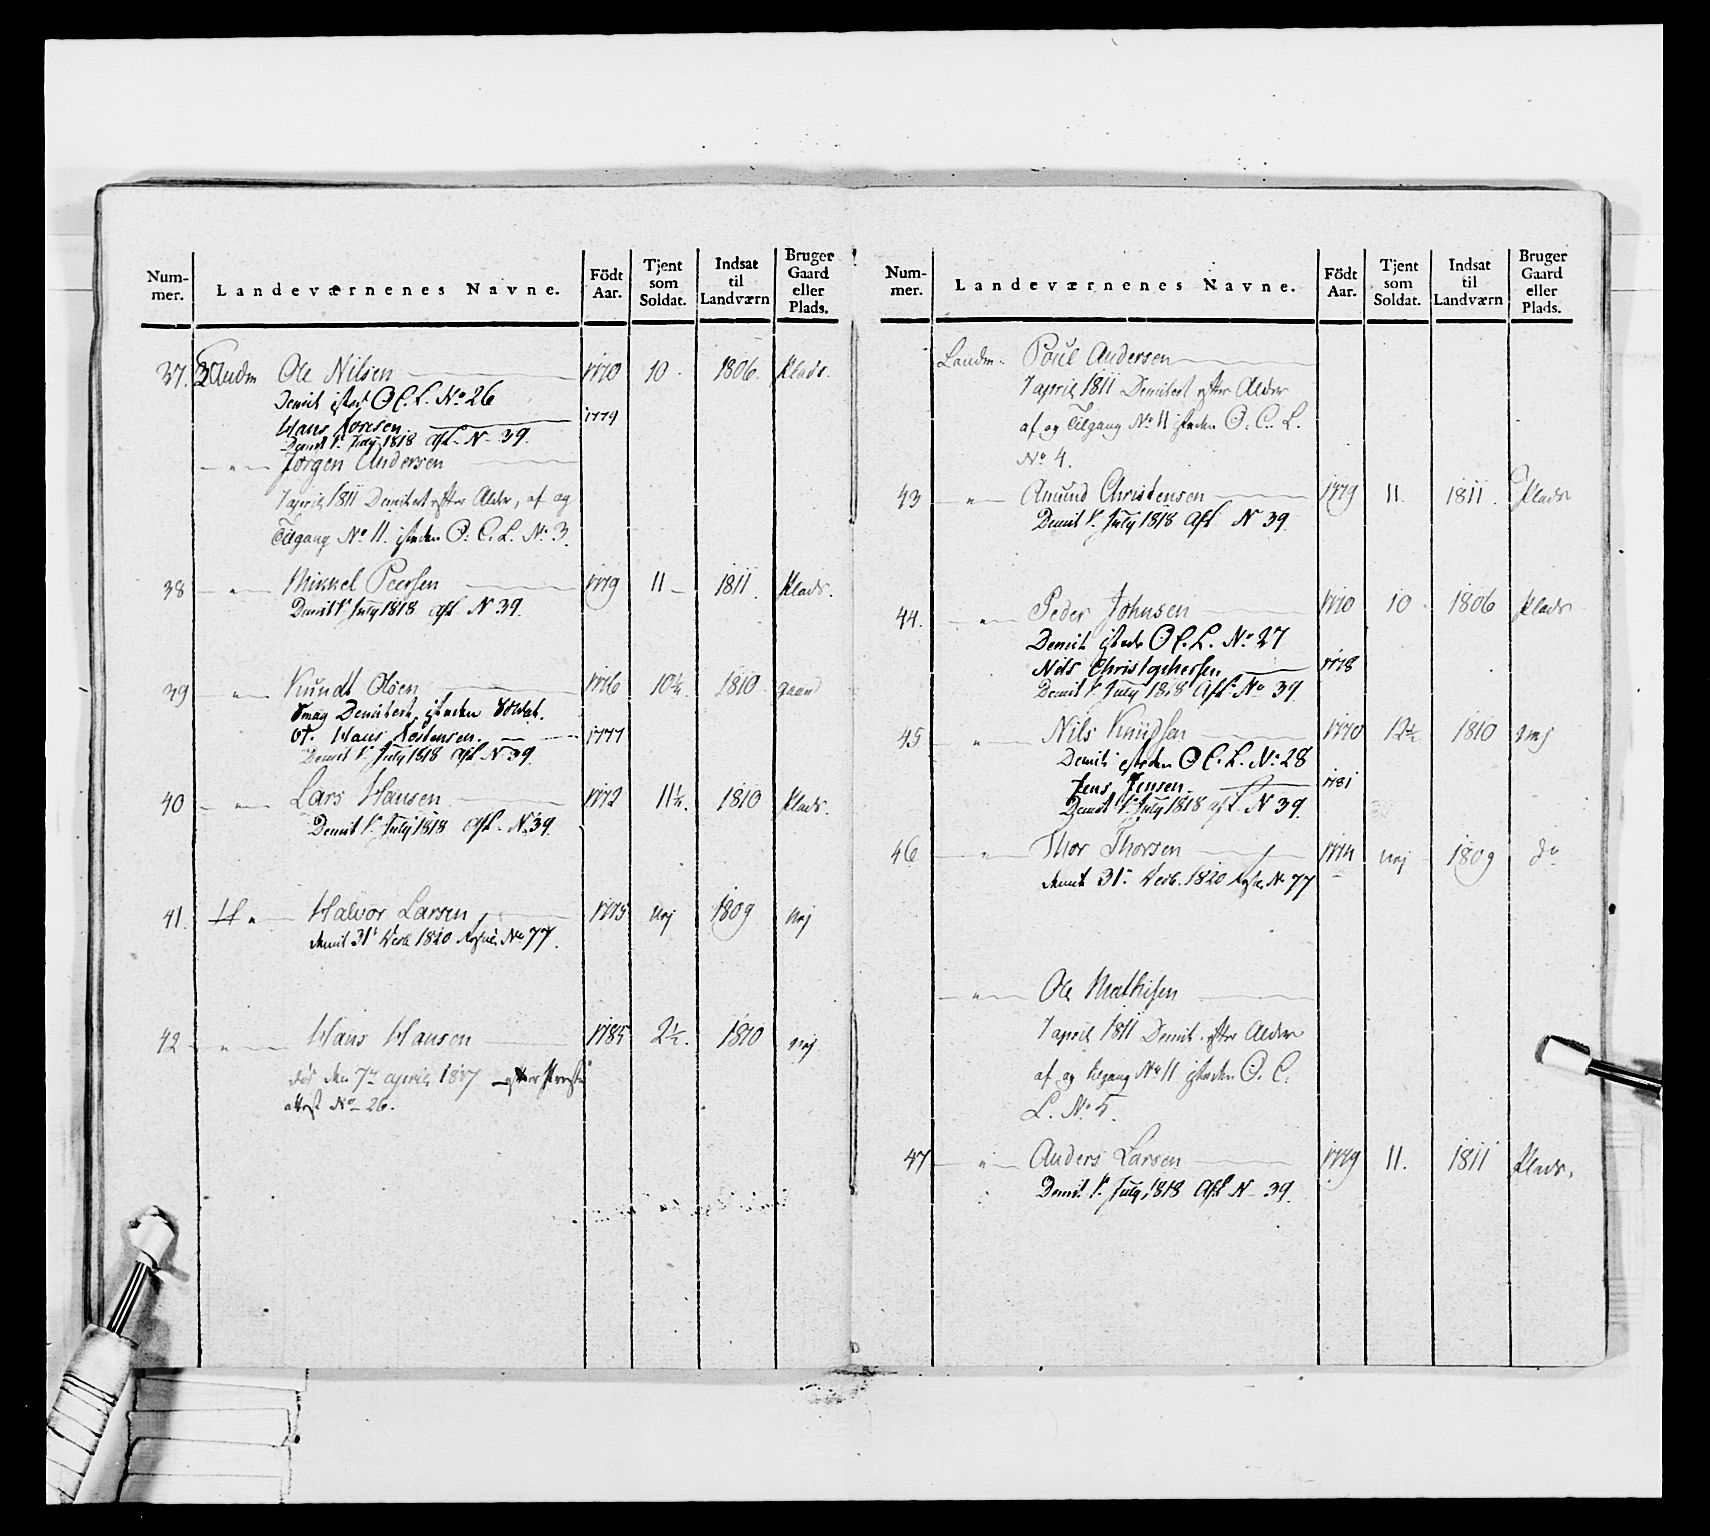 Num-mer. Landeværnenes Navne. Födt Aar. Tjent som Soldat. Indsat til Landværn Bruger Gaard eller Plads.
37. Landm Ole Nilsen 1770 10 1806. Plads.
Demit isted O C. L. No 26
Hans 1779
Demit 1. July 1818 Afl. N 39.
— " — Jörgen Andersen
7 april 1811 Demitert efter Alder, af og
Tilgang No 11. isteden O. C. L. No 3.
38 — " — Mikkel Peersen 1779 11 — 1811. Plads.
Demit 1. July 1818 afl. N 39.
39 " — Knudt Olsen 1776 10½ 1810 gaard
Demitert, isteden Soldat.
Hans 1777
Demit 1. July 1818 Afl N 39.
40 — " — Lars Hansen 1772 11½. 1810 Plads.
Demit 1. July 1818 Afl. N. 39.
41. " — Halvor Larsen 1775 nej 1809 nej
demit 31. 1820 No 77.
42 " — Hans Hansen 1785 2½. 1810 nej
död den 7de april 1817 efter
attest No 26.
Num-mer. Landeværnenes Navne. Födt Aar. Tjent som Soldat. Indsat til Landværn Bruger Gaard eller Plads.
Landm. Poul Andersen
7 april 1811 Demitert efter Alder
af og Tilgang No 11 isteden O. C. L.
No 4.
43 " — Amund Christensen 1779 11. 1811. Plads
Demit 1. July 1818 Afl N 39.
44. — " — Peder Johnsen 1770 10 1806 Plads
Demit isteden O C. L. No 27
Nils Christophersen 1778
Demit 1. July 1818 Afl. No 39
45 — " — Nils Knudsen 1770 12½ 1810 nej
Demit isteden O C. L. No 28
Jens Jensen. 1781
Demit 1. July 1818 afl. N 39.
46 — " — Thor Thorsen 1774 nej 1809 do
demit 31. 1820 No 77
— " — Ole Mathisen
7 april 1811 Demit. efter Alder
af og tilgang No 11 isteden O. C.
L. No 5.
47 — " — Anders Larsen 1779 11. 1811 Plads.
Demit 1. July 1818 Afl N 39.